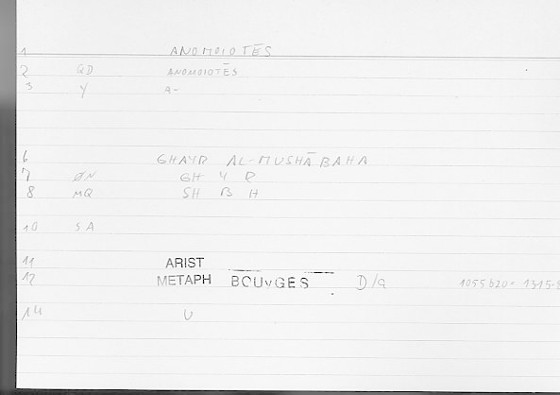 1 ANOMOIOTĒS
2 QD ANOMOIOTĒS
3 Y a-
6 GHAYR AL-MUSHĀBAHA
7 ØN GH Y R
8 MQ SH B H
10 SA
11 ARIST
12 METAPH BOUYGES D/a 1055b20= 1315.9
14 U